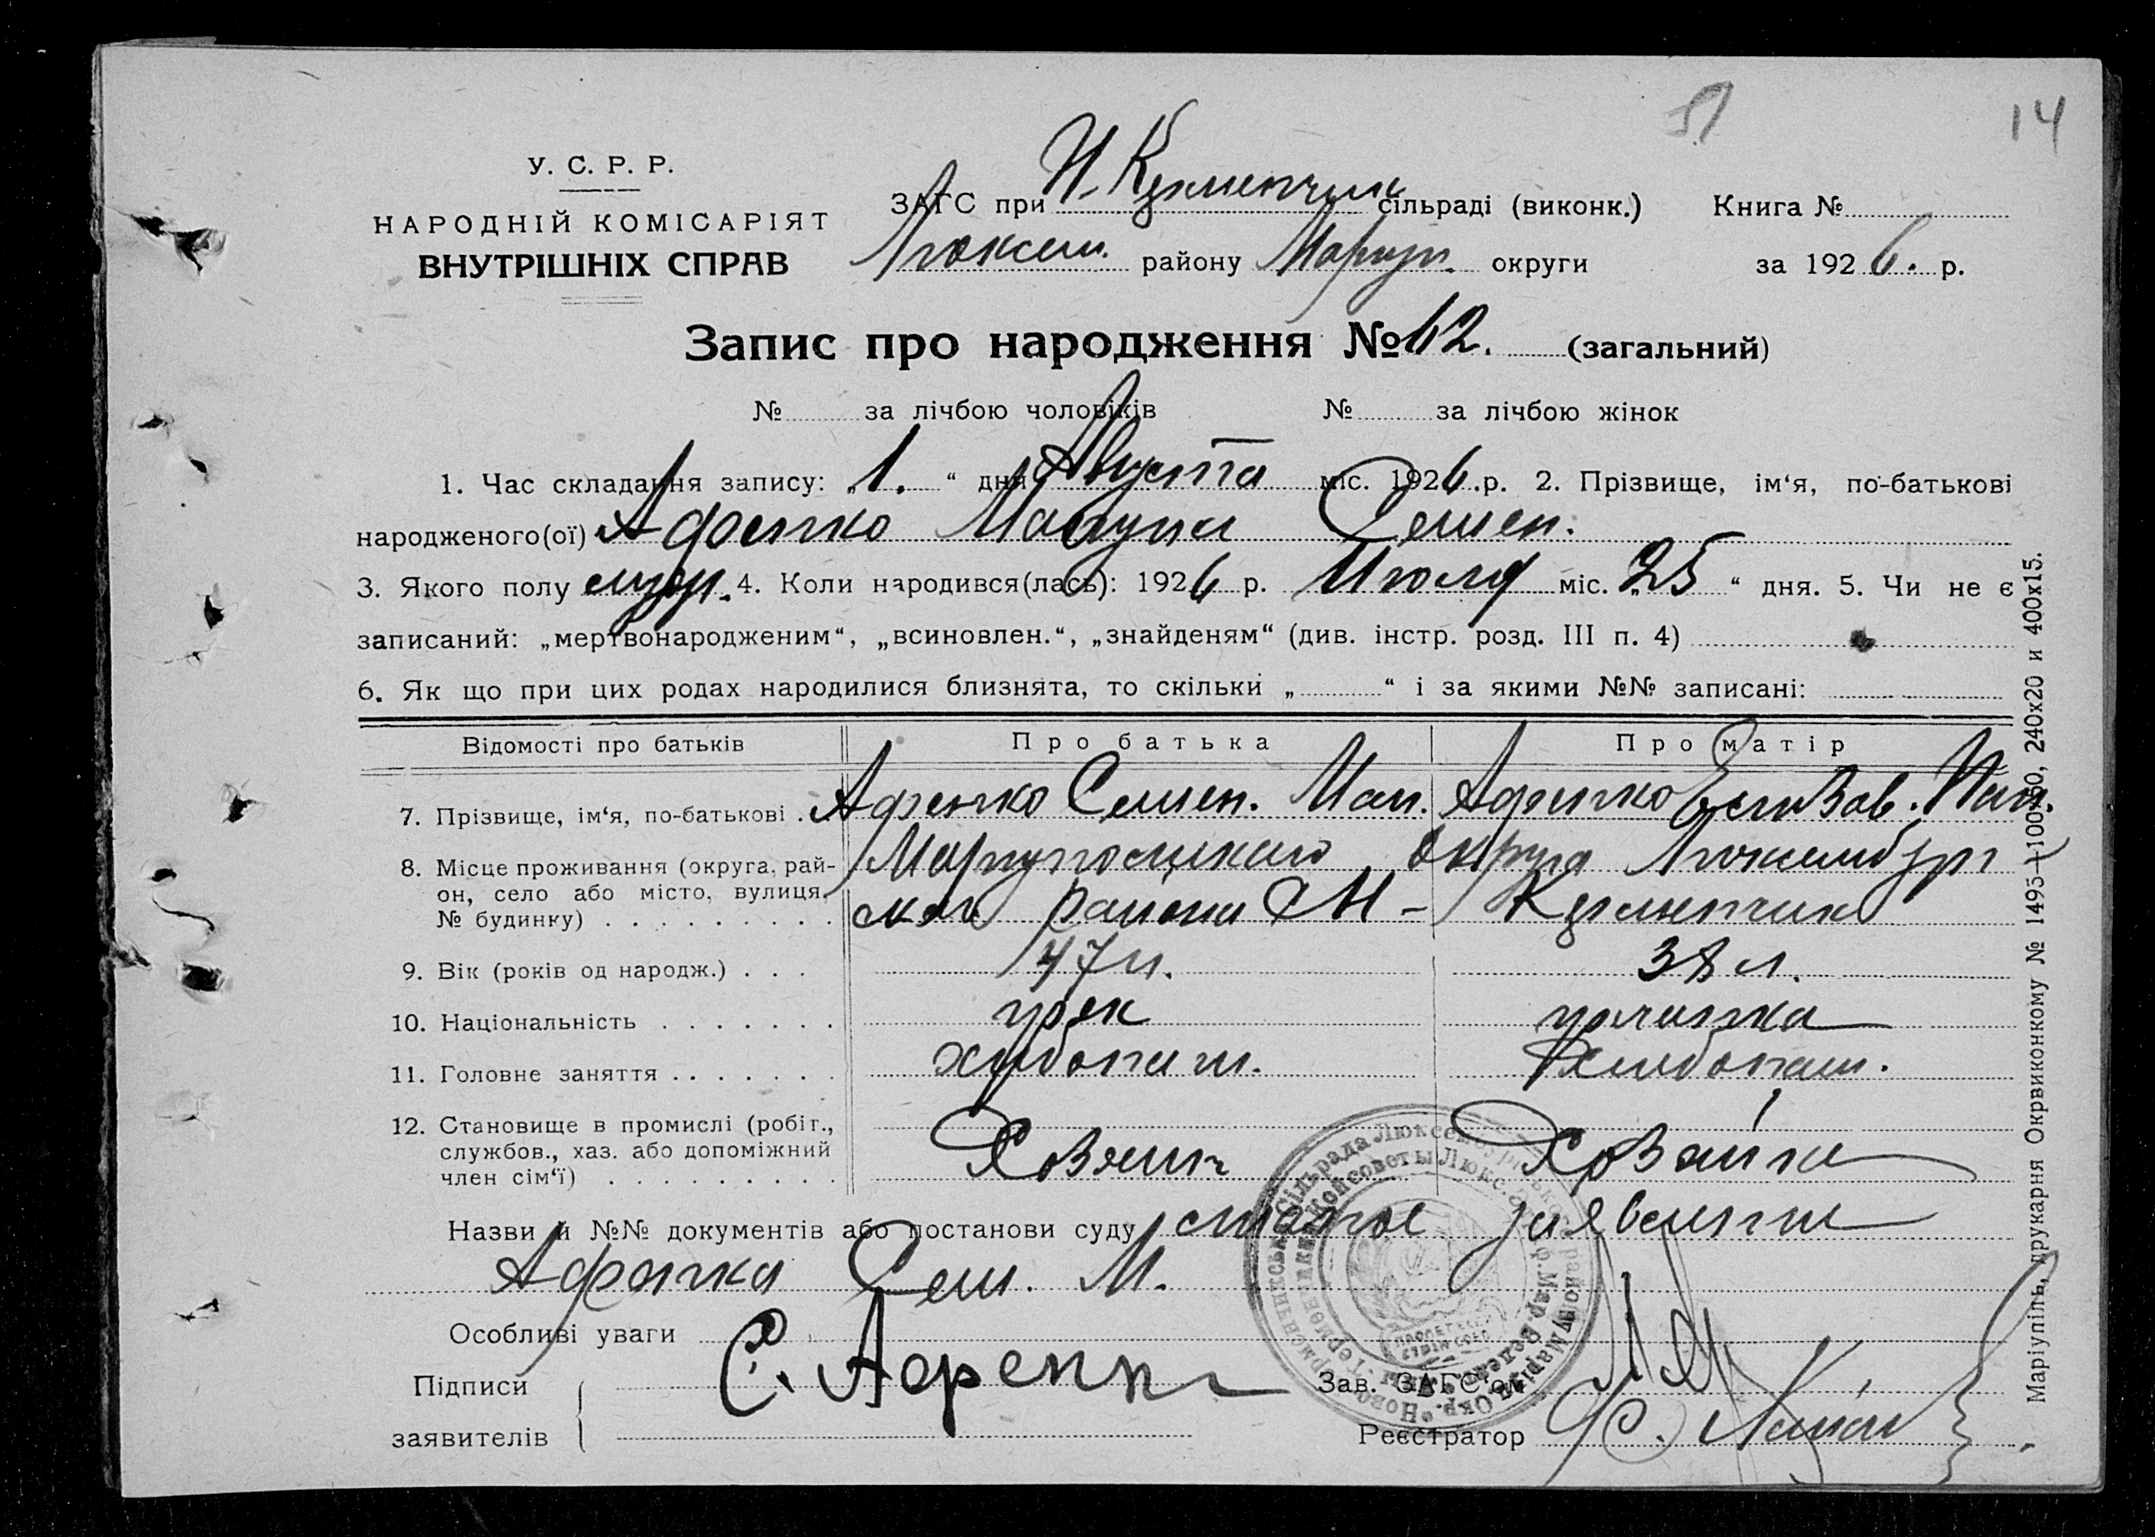 14
У. С. Р. Р.
НАРОДНІЙ КОМІСАРІЯТ
ВНУТРІШНІХ СПРАВ
ЗАГС при Н-Керменчик сільраді (виконк.) Книга №
Люксем. району Мариуп. округи за 1926. р.
Запис про народження № 62. (загальний)
№ за лічбою чоловіків № за лічбою жінок
1. Час складання запису: „1.“ дня Августа міс. 1926.р. 2. Прізвище, ім‘я, по-батькові
народженого(ої) Афенко Семен.
3. Якого полу 4. Коли народився(лась): 1926 р. Июля міс. „25“ дня. 5. Чи не є
записаний: „мертвонародженим“, „всиновлен.“, „знайденям“ (див. інстр. розд. III п. 4)
6. Як що при цих родах народилися близнята, то скільки „ “ і за якими №№ записані:
Відомості про батьків Про батька Про матір
7. Прізвище, ім‘я, по-батькові . Афенко Семен. Афенко Елизав. Пан.
8. Місце проживання (округа, рай-
он, село або місто, вулиця,
№ будинку) . . . . . . . . .
Мариупольскаго округа Люксембург
скаго района Н- Керменчик
9. Вік (років од народж.) . . . 47 л. 38 л.
10. Національність . . . . . . . грек гречанка
11. Головне заняття . . . . . . . хлебопаш. Хлебопаш.
12. Становище в промислі (робіг.,
службов., хаз. або допоміжний
член сім‘ї) . . . . . . . . .
Хозяин Хозайка
Назви й №№ документів або постанови суду заявление
Афенка Сем. М.
Особливі уваги
Підписи
заявителів
С. Афенк
Зав. ЗАГС‘ом
Реєстратор
Маріупіль, друкарня Окрвиконкому № 1495—100×50, 240х20 и 400х15.